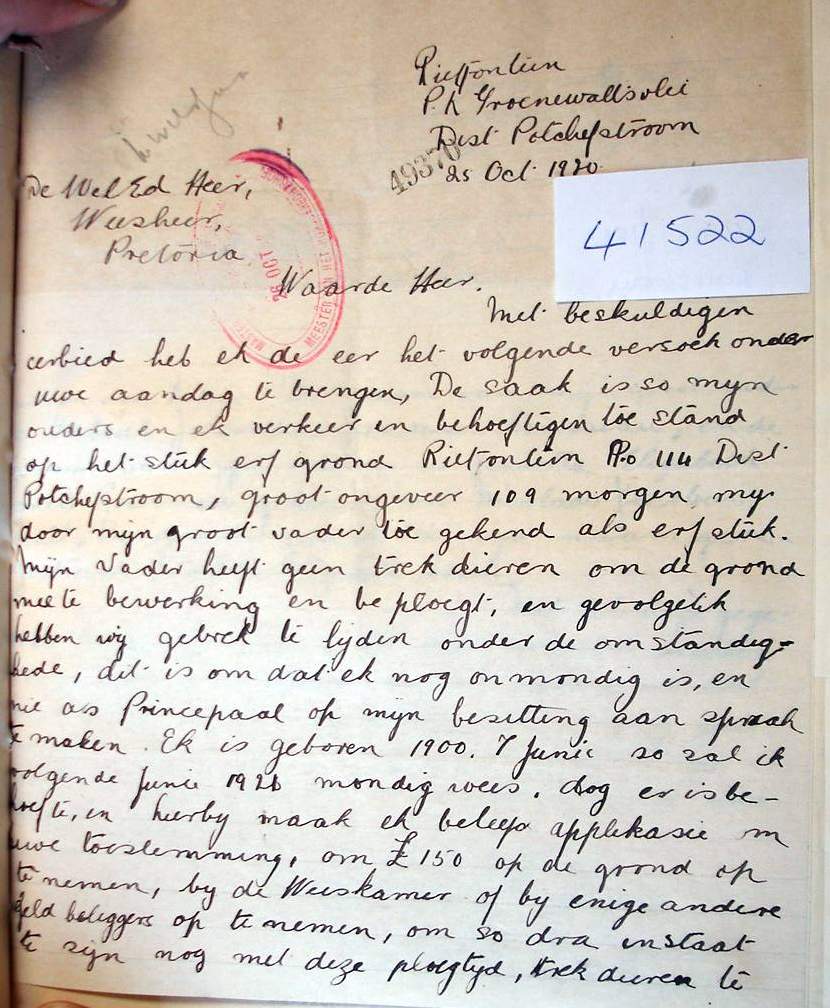 Rietfontein
P.k Groenewaldsvlei
Dist Potchefstroom
25 Oct 1920
49370
41522
De Wel Ed Heer,
Weesheer,
Pretoria
26 OCT
MEESTER VAN HET
Waarde Heer.
Met beskuldigen
eerbied heb ek de eer het volgende versoek onder
uwe aandag te brengen, De saak is so mijn
ouders en ek verkeer in behoeftigen toe stand
op het stuk erf grond Rietfontein No 114 Dist
Potchefstroom, groot ongeveer 109 morgen, my
door mijn groot vader toe gekend als erf stuk.
Mijn Vader heeft geen trek dieren om de grond
mee te bewerking en be ploegt, en gevolgelik
hebben wij gebrek te lijden onder de omstandig=
hede, dit is om dat ek nog onmondig is, en
nie as Princepaal op mijn besitting aan spraak
te maken. Ek is geboren 1900. 7 Junie so sal ik
volgende Junie 1921 mondig wees. dog er is be-
hoefte, en hierby maak ek beleefd applikasie om
uwe toestemming, om £150 op de grond op
te nemen, by de Weeskamer of by enige andere
geld beleggers op te nemen, om so dra instaat
te zijn nog met deze ploegtyd, trek dieren te